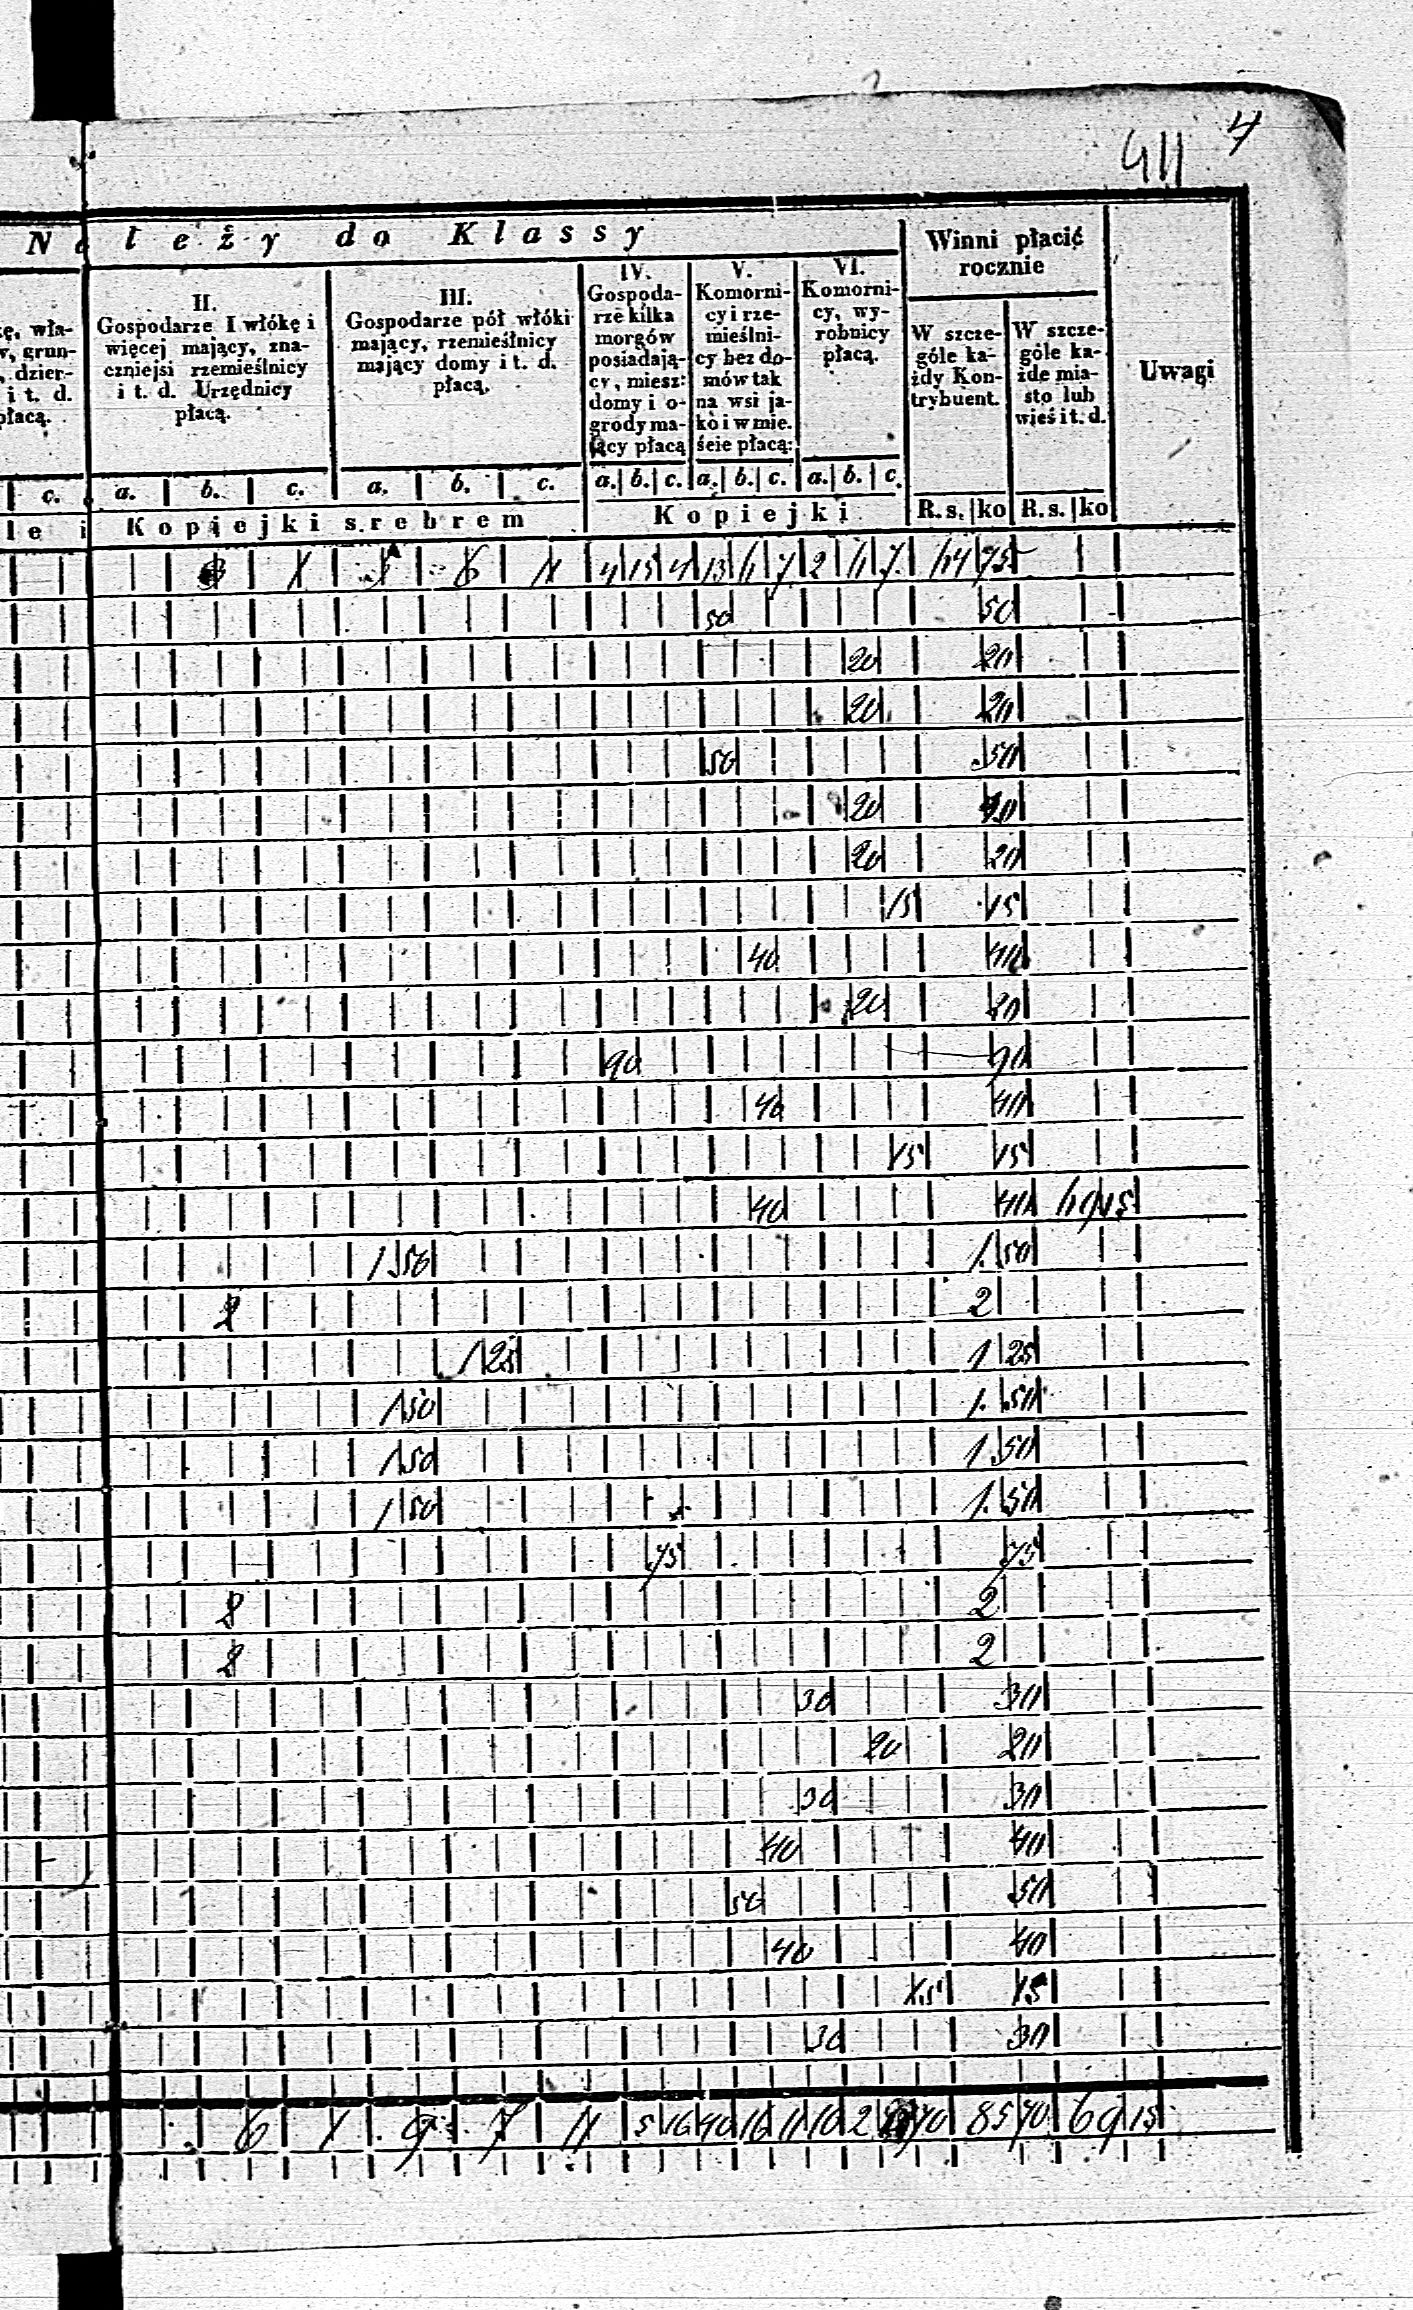 4
411
Należy do Klassy
Winni płacić
rocznie
Uwagi
kę, wła-
w, grun-
, dzier-
i t. d.
płacą.
II.
Gospodarze I włókę i
więcej mający, zna-
czniejsi rzemieślnicy
i t. d. Urzędnicy
płacą.
III.
Gospodarze pół włóki
mający, rzemieślnicy
mający domy i t. d.
płacą.
IV.
Gospoda-
rze kilka
morgów
posiadają-
cy, miesz:
domy i o-
grody ma-
jący płacą
V.
Komorni-
cy i rze-
mieślni-
cy bez do-
mów tak
na wsi ja-
ko i w mie.
ście płacą:
VI.
Komorni-
cy, wy-
robnicy
płacą.
W szcze-
góle ka-
żdy Kon-
trybuent.
W szcze-
góle ka-
żde mia-
sto lub
wieś i t. d.
c. a. b. c. a. b. c. a. b. c. a. b. c. a. b. c.
le i Kopiejki srebrem Kopiejki R.s. ko R.s. ko
3 1 6 11 4 15 4 13 11 7 2 11 7 64 75
50 50
20 20
20 20
50 50
20 20
20 20
15 15
40 40
20 20
90 90
40 40
15 15
40 40 69 15
1 50 1. 50
2 2
1 25 1 25
1 50 1. 50
1 50 1. 50
1 50 1. 50
75 75
2 2
2 2
30 30
20 20
30 30
40 40
50 50
40 40
15 15
30 30
6 1 9 7 11 5 16 40 16 11 10 2 40 85 70 69 15